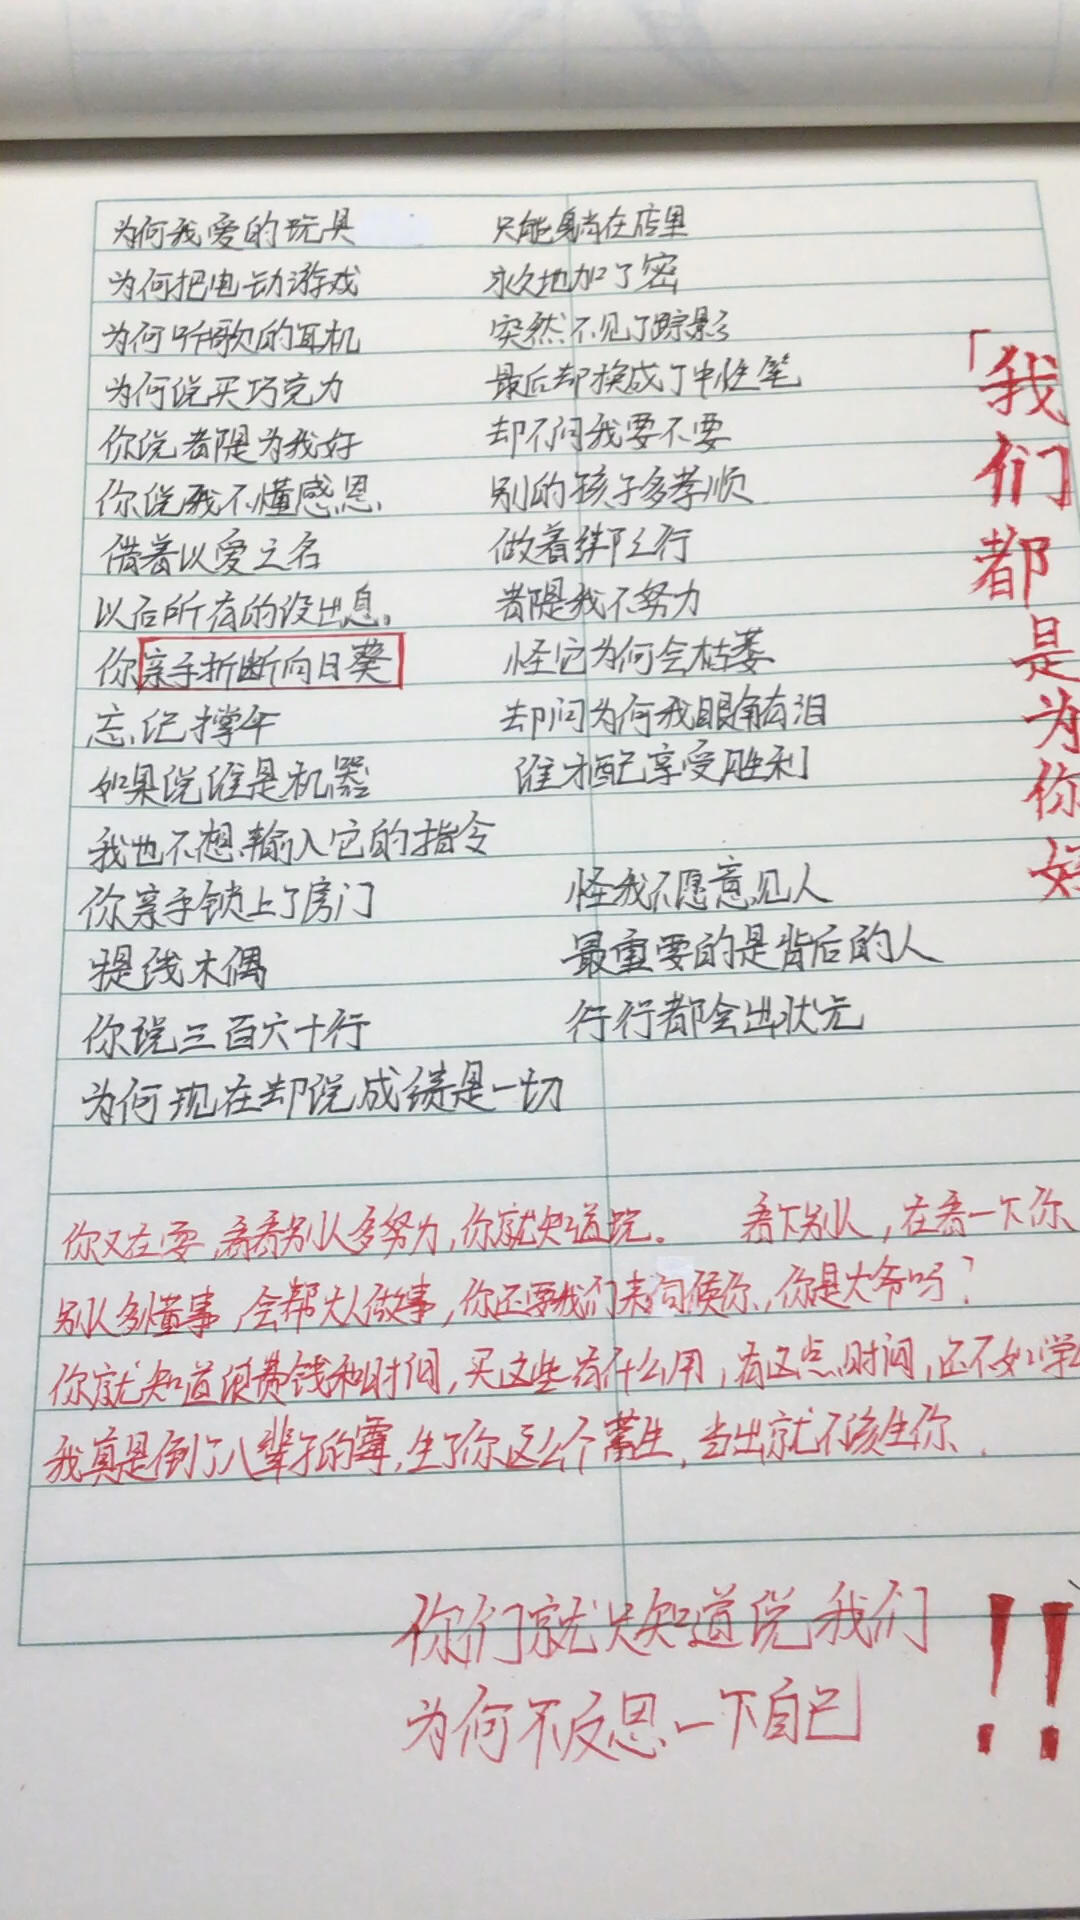 为何我爱的玩具 只能躺在店里
为何把电动游戏 永久地加了密
为何听歌的耳机 突然不见了踪影
为何说买巧克力 最后却换成了中性笔
你说都是为我好 却不问我要不要
你说我不懂感恩 别的孩子多孝顺
借着以爱之名 做着绑队行
以后所有的没出息。 都是我不努力
你亲手折断向日葵 怪它为何会枯萎
忘记撑伞 却问为何我眼角有泪
如果说谁是机器 谁才配享受胜利
我也不想输入它的指令
你亲手锁上了房门 怪我不愿意见人
提线木偶 最重要的是背后的人
你说三百六十行 行行都会出状元
为何现在却说成绩是一切
你又在耍,看看别人多努力,你就知道玩。 看下别人,在看一下你
别人多懂事,会帮大人做事,你还要我们来伺候你,你是大爷吗?
你就知道浪费钱和时间,买这些有什么用,有这点时间,还不如学
我真是倒了八辈子的霉,生了你这么个畜生,当出就不该生你.
你们就只知道说我们
为何不反思一下自己 !!
「我们都是为你好